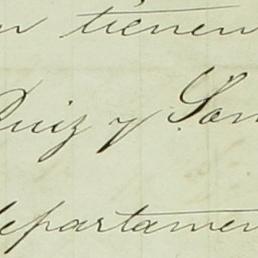 n tienen
Ruiz y San
departamen